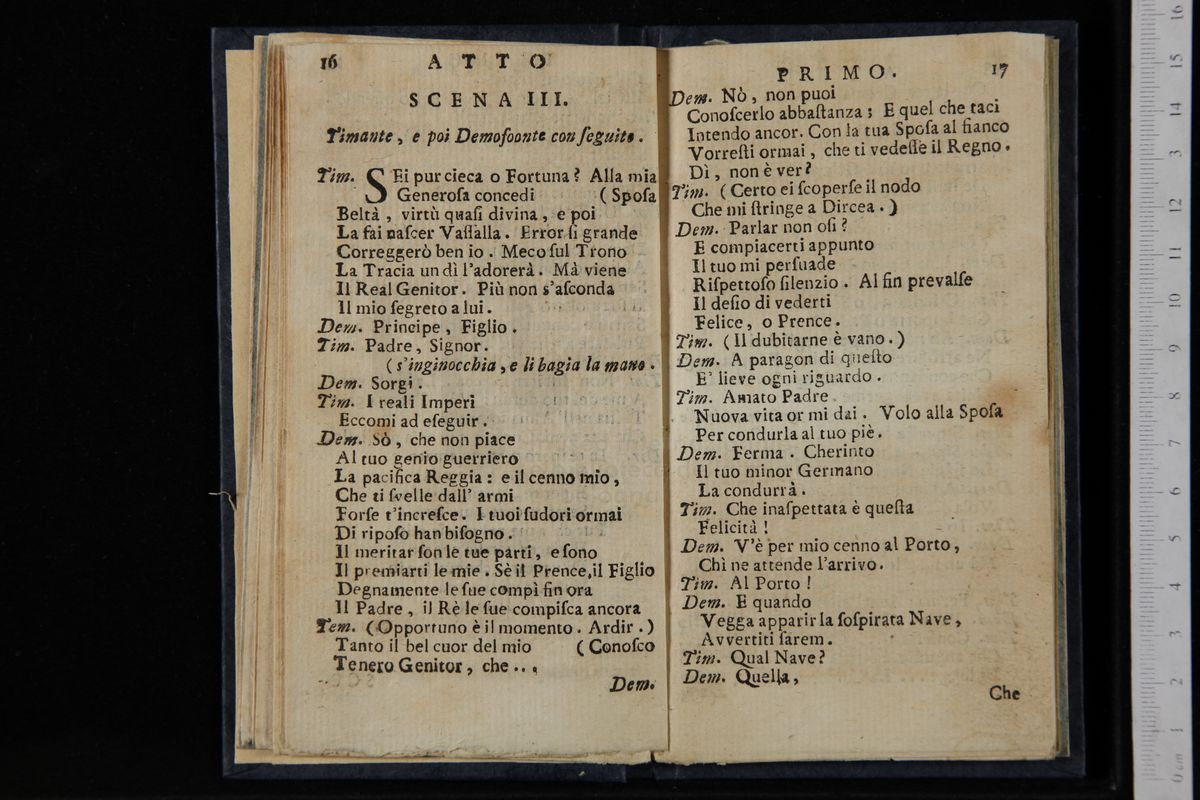 16 ATTO
SCENA III.
Timante, e poi Demofoonte con ſeguito.
Tim. SEi pur cieca o Fortuna? Alla mia
Generoſa concedi (Spoſa
Beltà, virtù quaſi divina, e poi
La fai naſcer Vaſſalla. Error ſi grande
Correggerò ben io. Meco ſul Trono
La Tracia un dì l'adorerà. Mà viene
Il Real Genitor. Più non s'aſconda
Il mio ſegreto a lui.
Dem. Principe, Figlio.
Tim. Padre, Signor.
(s'inginocchia, e li bagia la mano.
Dem. Sorgi.
Tim. I reali Imperi
Eccomi ad eſeguir.
Dem. Sò, che non piace
Al tuo genio guerriero
La pacifica Reggia: e il cenno mio,
Che ti ſvelle dall' armi
Forſe t'increſce. I tuoi ſudori ormai
Di ripoſo han biſogno.
Il meritar ſon le tue parti, e ſono
Il premiarti le mie. Sè il Prence, il Figlio
Degnamente le ſue compì fin ora
Il Padre, il Rè le ſue compiſca ancora
Tem. (Opportuno è il momento. Ardir.)
Tanto il bel cuor del mio (Conoſco
Tenero Genitor, che...
Dem.
PRIMO. 17
Dem. Nò, non puoi
Conoſcerlo abbaſtanza; E quel che taci
Intendo ancor. Con la tua Spoſa al fianco
Vorreſti ormai, che ti vedeſſe il Regno.
Dì, non è ver?
Tim. (Certo ei ſcoperſe il nodo
Che mi ſtringe a Dircea.)
Dem. Parlar non oſi?
E compiacerti appunto
Il tuo mi perſuade
Riſpettoſo ſilenzio. Al fin prevalſe
Il deſio di vederti
Felice, o Prence.
Tim. (Il dubitarne è vano.)
Dem. A paragon di queſto
E' lieve ogni riguardo.
Tim. Amato Padre
Nuova vita or mi dai. Volo alla Spoſa
Per condurla al tuo piè.
Dem. Ferma. Cherinto
Il tuo minor Germano
La condurrà.
Tim. Che inaſpettata è queſta
Felicità!
Dem. V'è per mio cenno al Porto,
Chì ne attende l'arrivo.
Tim. Al Porto!
Dem. E quando
Vegga apparir la ſoſpirata Nave,
Avvertiti ſarem.
Tim. Qual Nave?
Dem. Quella,
Che
16
15
14
13
12
11
10
9
8
7
6
5
4
3
2
1
0 cm